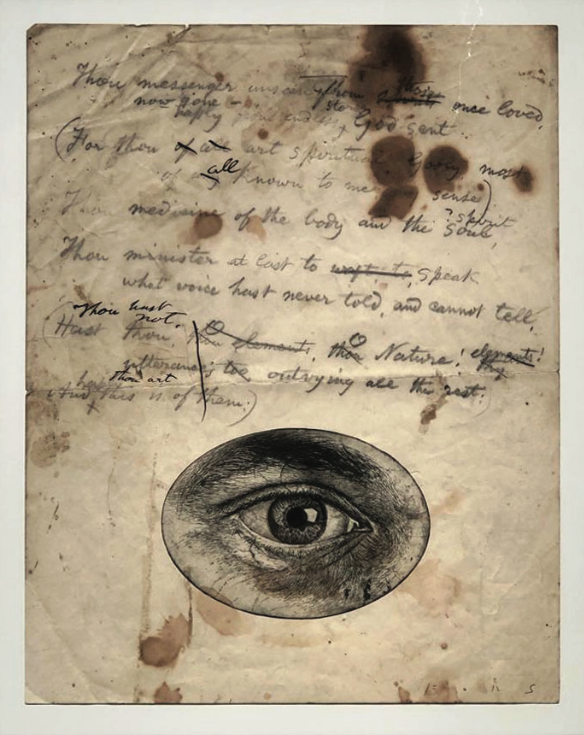 Thou messenger from those once loved,
now gone -
happy God sent
(For thou art spiritual Godly most
of all known to me sense)
Thou medicine of the body and the soul, ? spirit
Thou minister at last to waft to speak
what voice hast never told, and cannot tell,
Thou hast not.
(Hast thou, O elements, thou O Nature! elements!
utterances outvying all the rest. thy
thou art
And this is of them.)